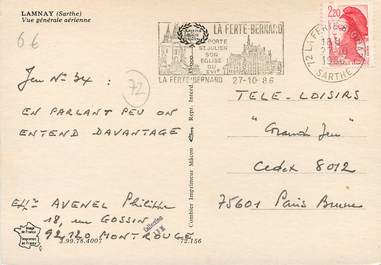 LAMNAY (Sarthe)
Vue générale aérienne
66
Jeu N° 34 :
72
EN PARLANT PEU ON
ENTEND DAVANTAGE
AVENEL Philippe
18, rue GOSSIN
92120 MONTROUGE
3.99.76.4007
72.156
Combier Imprimeur Mâcon
Repr. Interd.
LA FERTE-BERNARD
PORTE
ST JULIEN
SON
EGLISE
DU
XVIe
LA FERTE BERNARD 27-10-86
72 LA FERTE BERNARD
SARTHE
2,20
TELE-LOISIRS
"Grand Jeu"
Cedex 8012
75601 Paris Brune